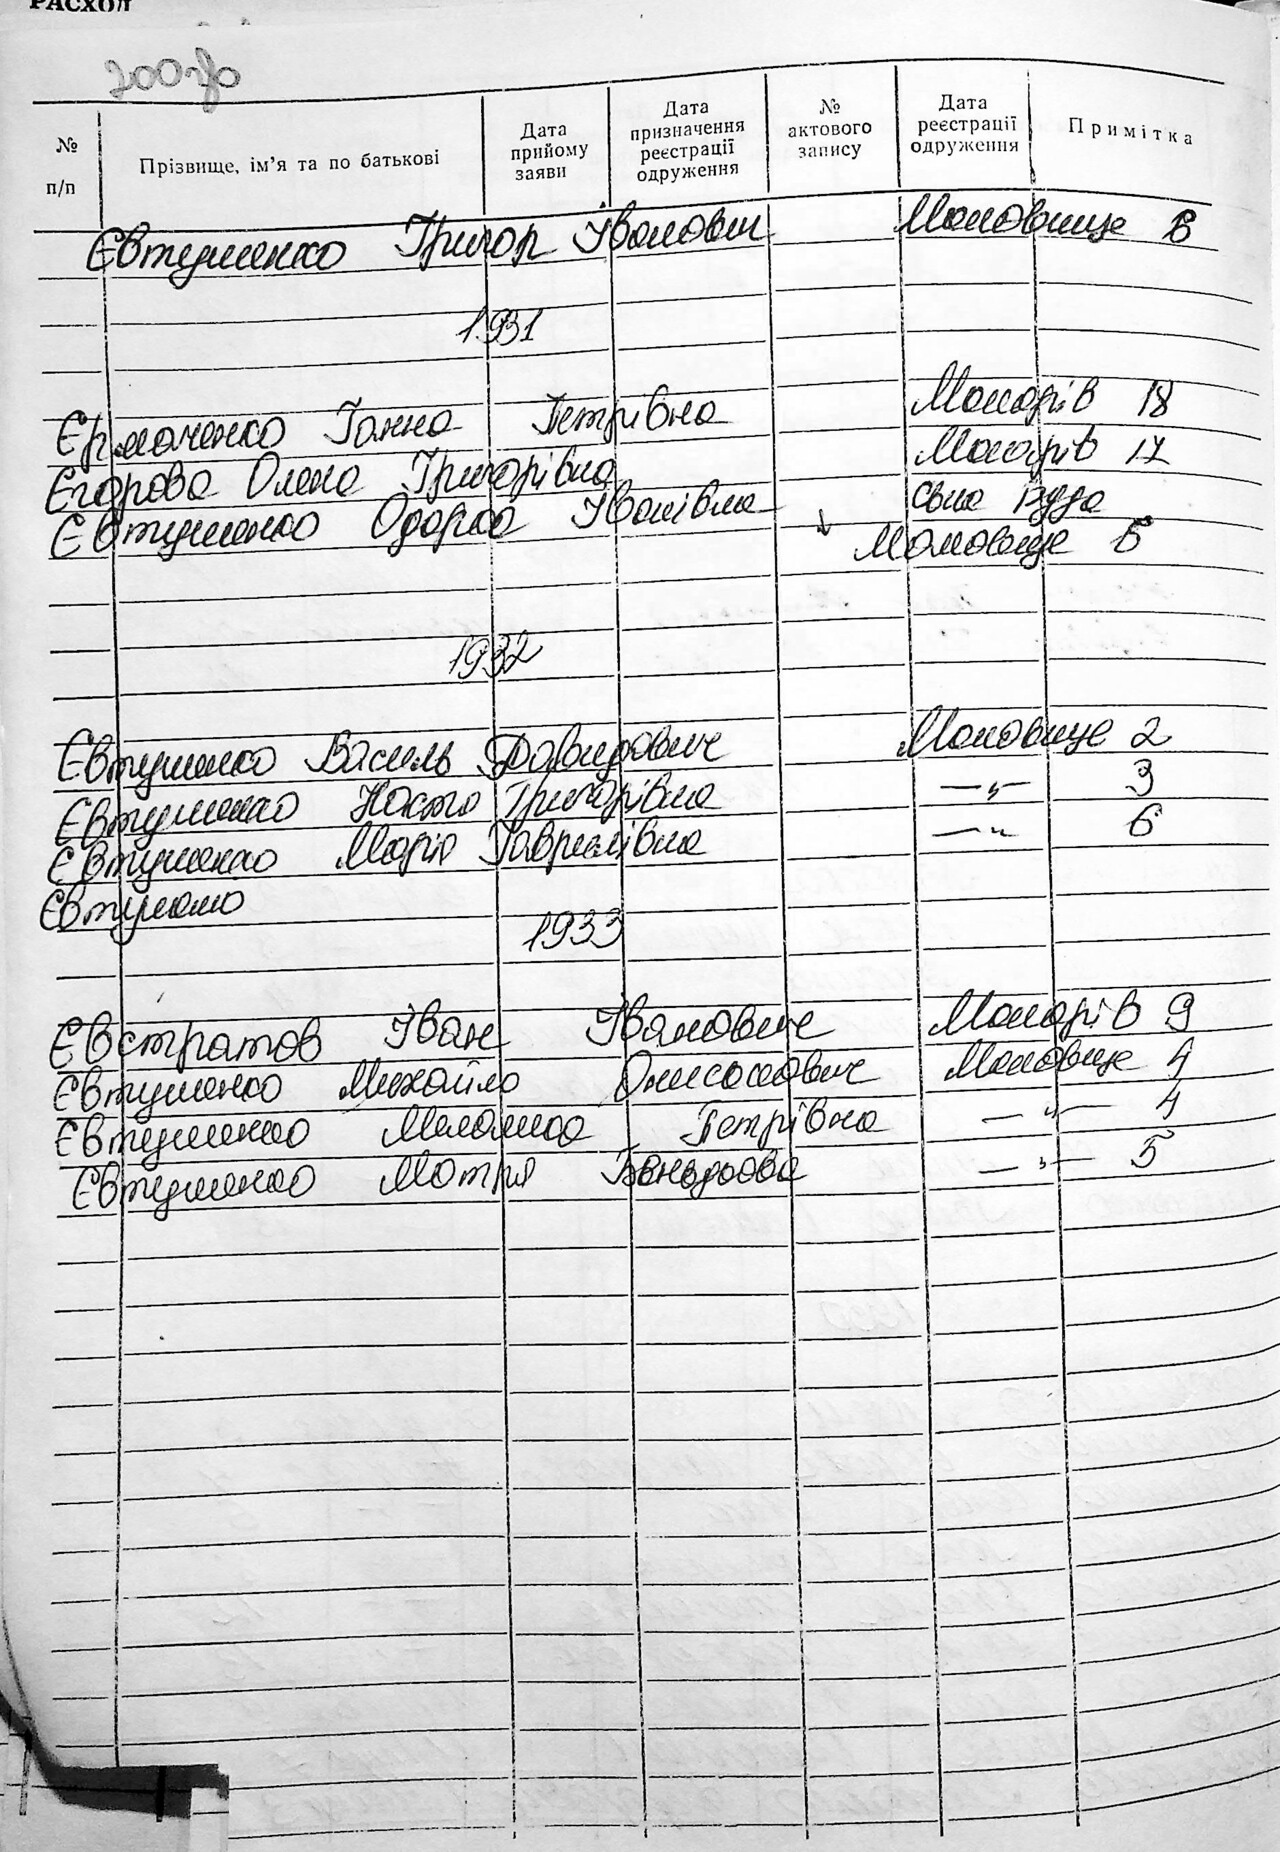 РАСХОД
200
№ п/п
Прізвище, ім'я та по батькові
Дата прийому заяви
Дата призначення реєстрації одруження
№ актового запису
Дата реєстрації одруження
Примітка
Євтушенко Григор Іванович Маковище 6
1931
Єрмаченко Ганна Петрівна Макарів 18
Єгорова Олена Григорівна Макарів 17
Євтушенко Одарка Іванівна Рудо
Маковище 5
1932
Євтушенко Василь Давидович Маковище 2
Євтушенко Настя Григорівна —"— 3
Євтушенко Марія Гаврилівна —"— 6
Євтушенко
1933
Євстратов Іван Іванович Макарів 9
Євтушенко Михайло Маковище 4
Євтушенко Меланка Петрівна —"— 4
Євтушенко Мотря —"— 5